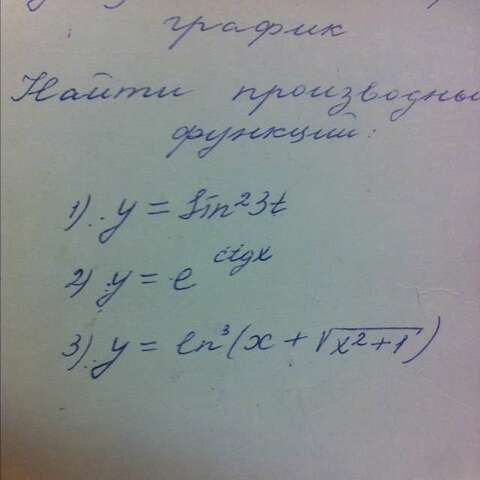 график
Найти производны
функций:
1) y = sin²3t
2) y = e^ctgx
3) y = ln³(x + √x²+1)